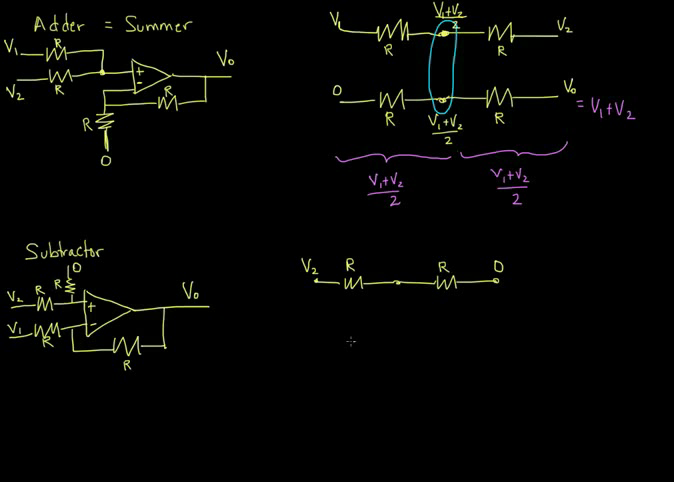 Adder = Summer
V₁
R
V₂
R
+
-
R
R
0
V₀
V₁
R
V₁+V₂
2
R
V₂
0
R
V₁+V₂
2
R
V₀
= V₁+V₂
V₁+V₂
2
V₁+V₂
2
Subtractor
0
R
V₂
R
V₁
R
+
-
R
V₀
V₂
R
R
0